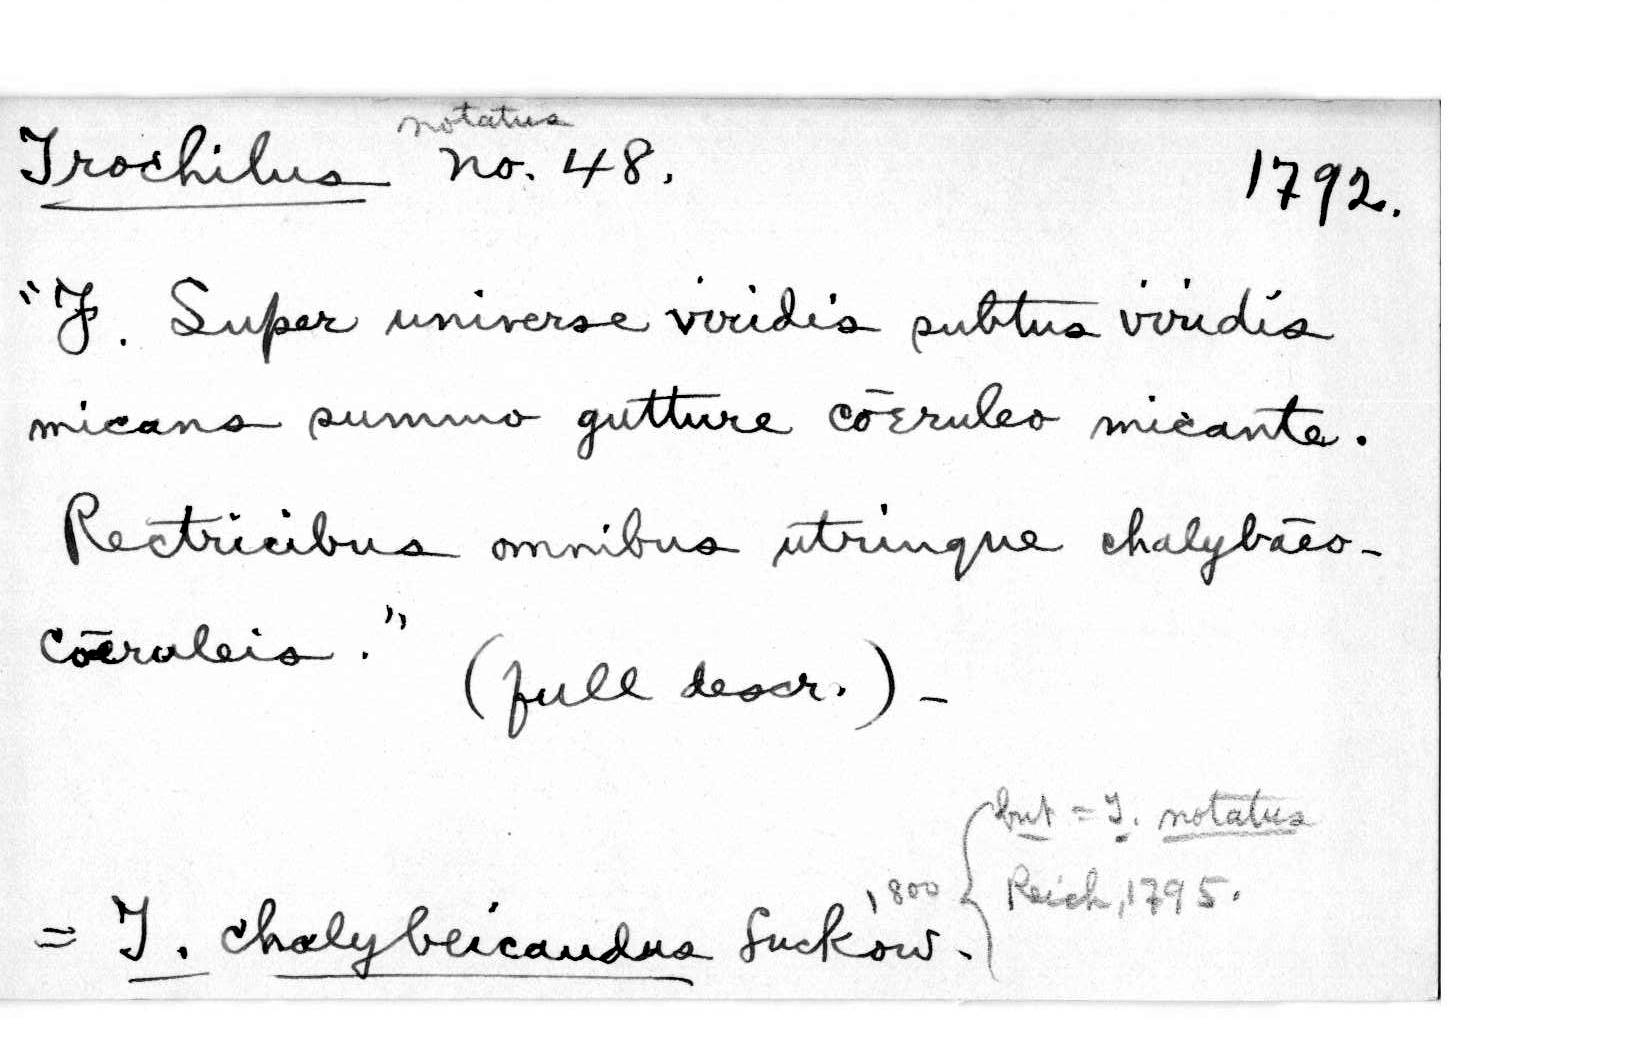 notatus
Trochilus no. 48. 1792.
"T. Super universe viridis subtus viridis
micans summo gutture cōeruleo micante.
Rectricibus omnibus utrinque chalybāeo-
cōeruleis." (full descr.) -
but = T. notatus
Reich, 1795.
= T. chalybeicaudus Suckow. 1800